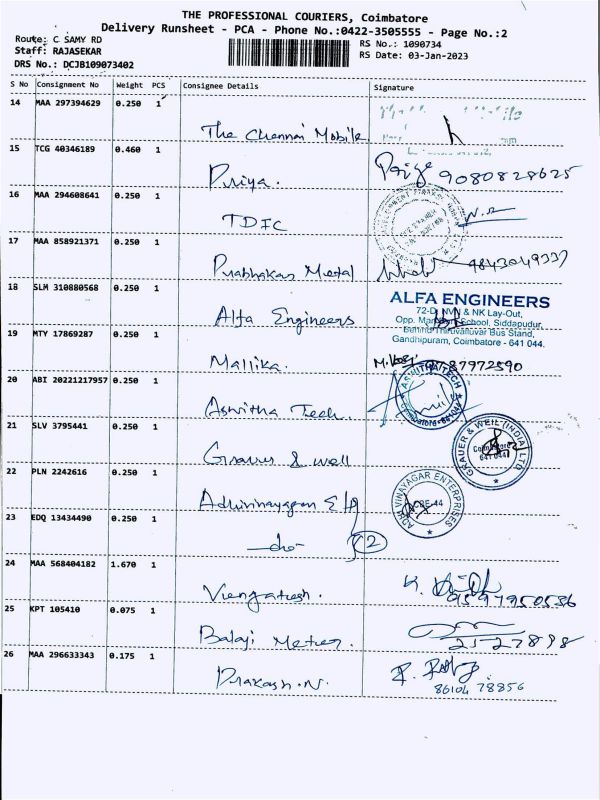 THE PROFESSIONAL COURIERS, Coimbatore
Delivery Runsheet - PCA - Phone No.:0422-3505555 - Page No.:2
Route: C SAMY RD
RS No.: 1090734
Staff: RAJASEKAR
RS Date: 03-Jan-2023
DRS No.: DCJB109073402
S No Consignment No Weight PCS Consignee Details Signature
14 MAA 297394629 0.250 1
The Chennai Mobile
15 TCG 40346189 0.460 1
Priya. 9080828625
16 MAA 294608641 0.250 1
TDFC
17 MAA 858921371 0.250 1
Prabhakar Metal 9843049337
18 SLM 310880568 0.250 1
Alfa Engineers
ALFA ENGINEERS
72-D, NVN & NK Lay-Out,
Opp. School, Siddapudur,
Behind Thiruvalluvar Bus Stand,
Gandhipuram, Coimbatore - 641 044.
19 MTY 17869287 0.250 1
Mallika. 9787972590
20 ABI 20221217957 0.250 1
Aswitha Tech
ASWITHA TECH
Coimbatore-641044
21 SLV 3795441 0.250 1
Grauer & Weil
GRAUER & WEIL (INDIA) LTD
Coimbatore
641 044
22 PLN 2242616 0.250 1
Adhivinayagar
ADHI VINAYAGAR ENTERPRISES
CBE-44
23 EDQ 13434490 0.250 1
-do- 2
24 MAA 568404182 1.670 1
Vengatesh.
25 KPT 105410 0.075 1
Balaji 2527898
26 MAA 296633343 0.175 1
Prakash.N. 86104 78856